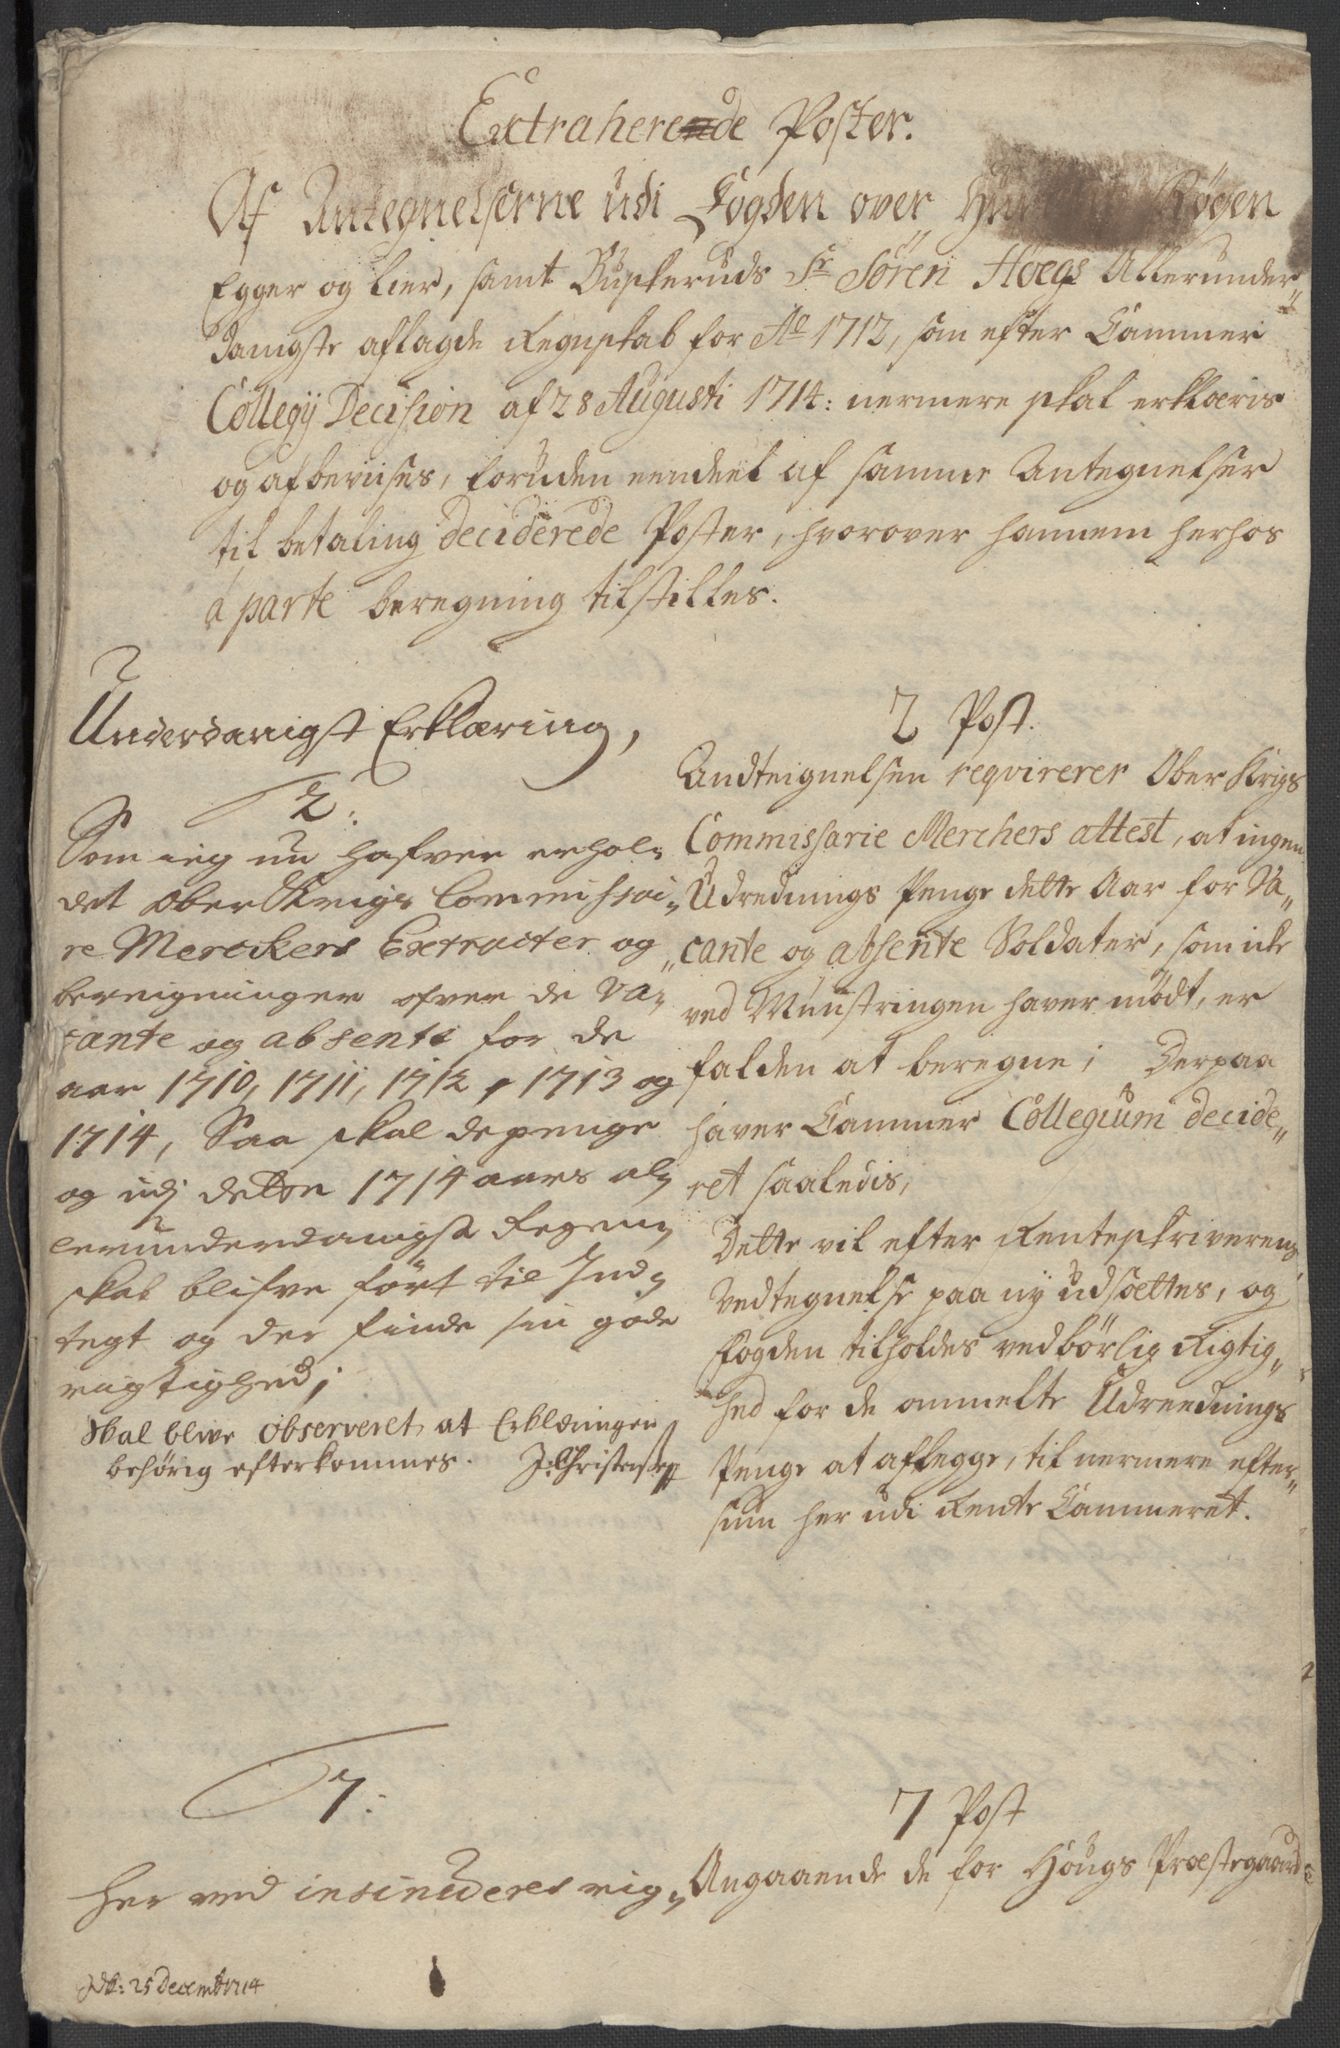 Extraherende Poster.
Af Antegnelserne udi Fogden over Hur Røgen
Egger og Lier, samt Buskeruds Sr Søren Høegs Allerunder-
danigste aflagde Regnskab for Ao 1712, som efter Cammer
Collegij Decision af 28 Augusti 1714: nermere skal erklæris
og afbeviises, foruden eendeel af samme Antegnelser
til betaling deciderede Poster, hvorover hannem herhos
á parte beregning tilstilles.
Underdanigst Erklæring,
2:
Som ieg nu hafver erhol„
det Ober Krigs Commissai„
re Merckers Extracter og
bereigninger ofver de va„
cante og absente for de
aar 1710, 1711, 1712, 1713 og
1714, Saa skal de penge
og udj dette 1714 aars al„
lerunderdanigste Regen„
skab blifve ført til Ind„
tegt og der finde sin gode
rigtighed;
Skal blive observeret, at Erklæringen
behørig efterkommes. J: Christensen
2 Post.
Andteignelsen reqvirerer Ober Krigs
Commissarie Merchers attest, at ingen
Udrednings Penge dette Aar for Va„
cante og absente Soldater, som icke
ved Munstringen haver mødt, er
falden at beregne; Derpaa
haver Cammer Collegium decide„
ret saaledis,
Dette vil efter Renteskriverens
Vedtegnelse paa ny udsættes, og
Fogden tilholdes vedbørlig Rigtig„
hed for de ommelte Udreednings
Penge at aflegge, til nermere efter„
siun her udi Rente Cammeret.
7:
Her ved insinueres rig„
7 Post
Angaaende de for Hougs Præstegaard
25 Decemb 1714